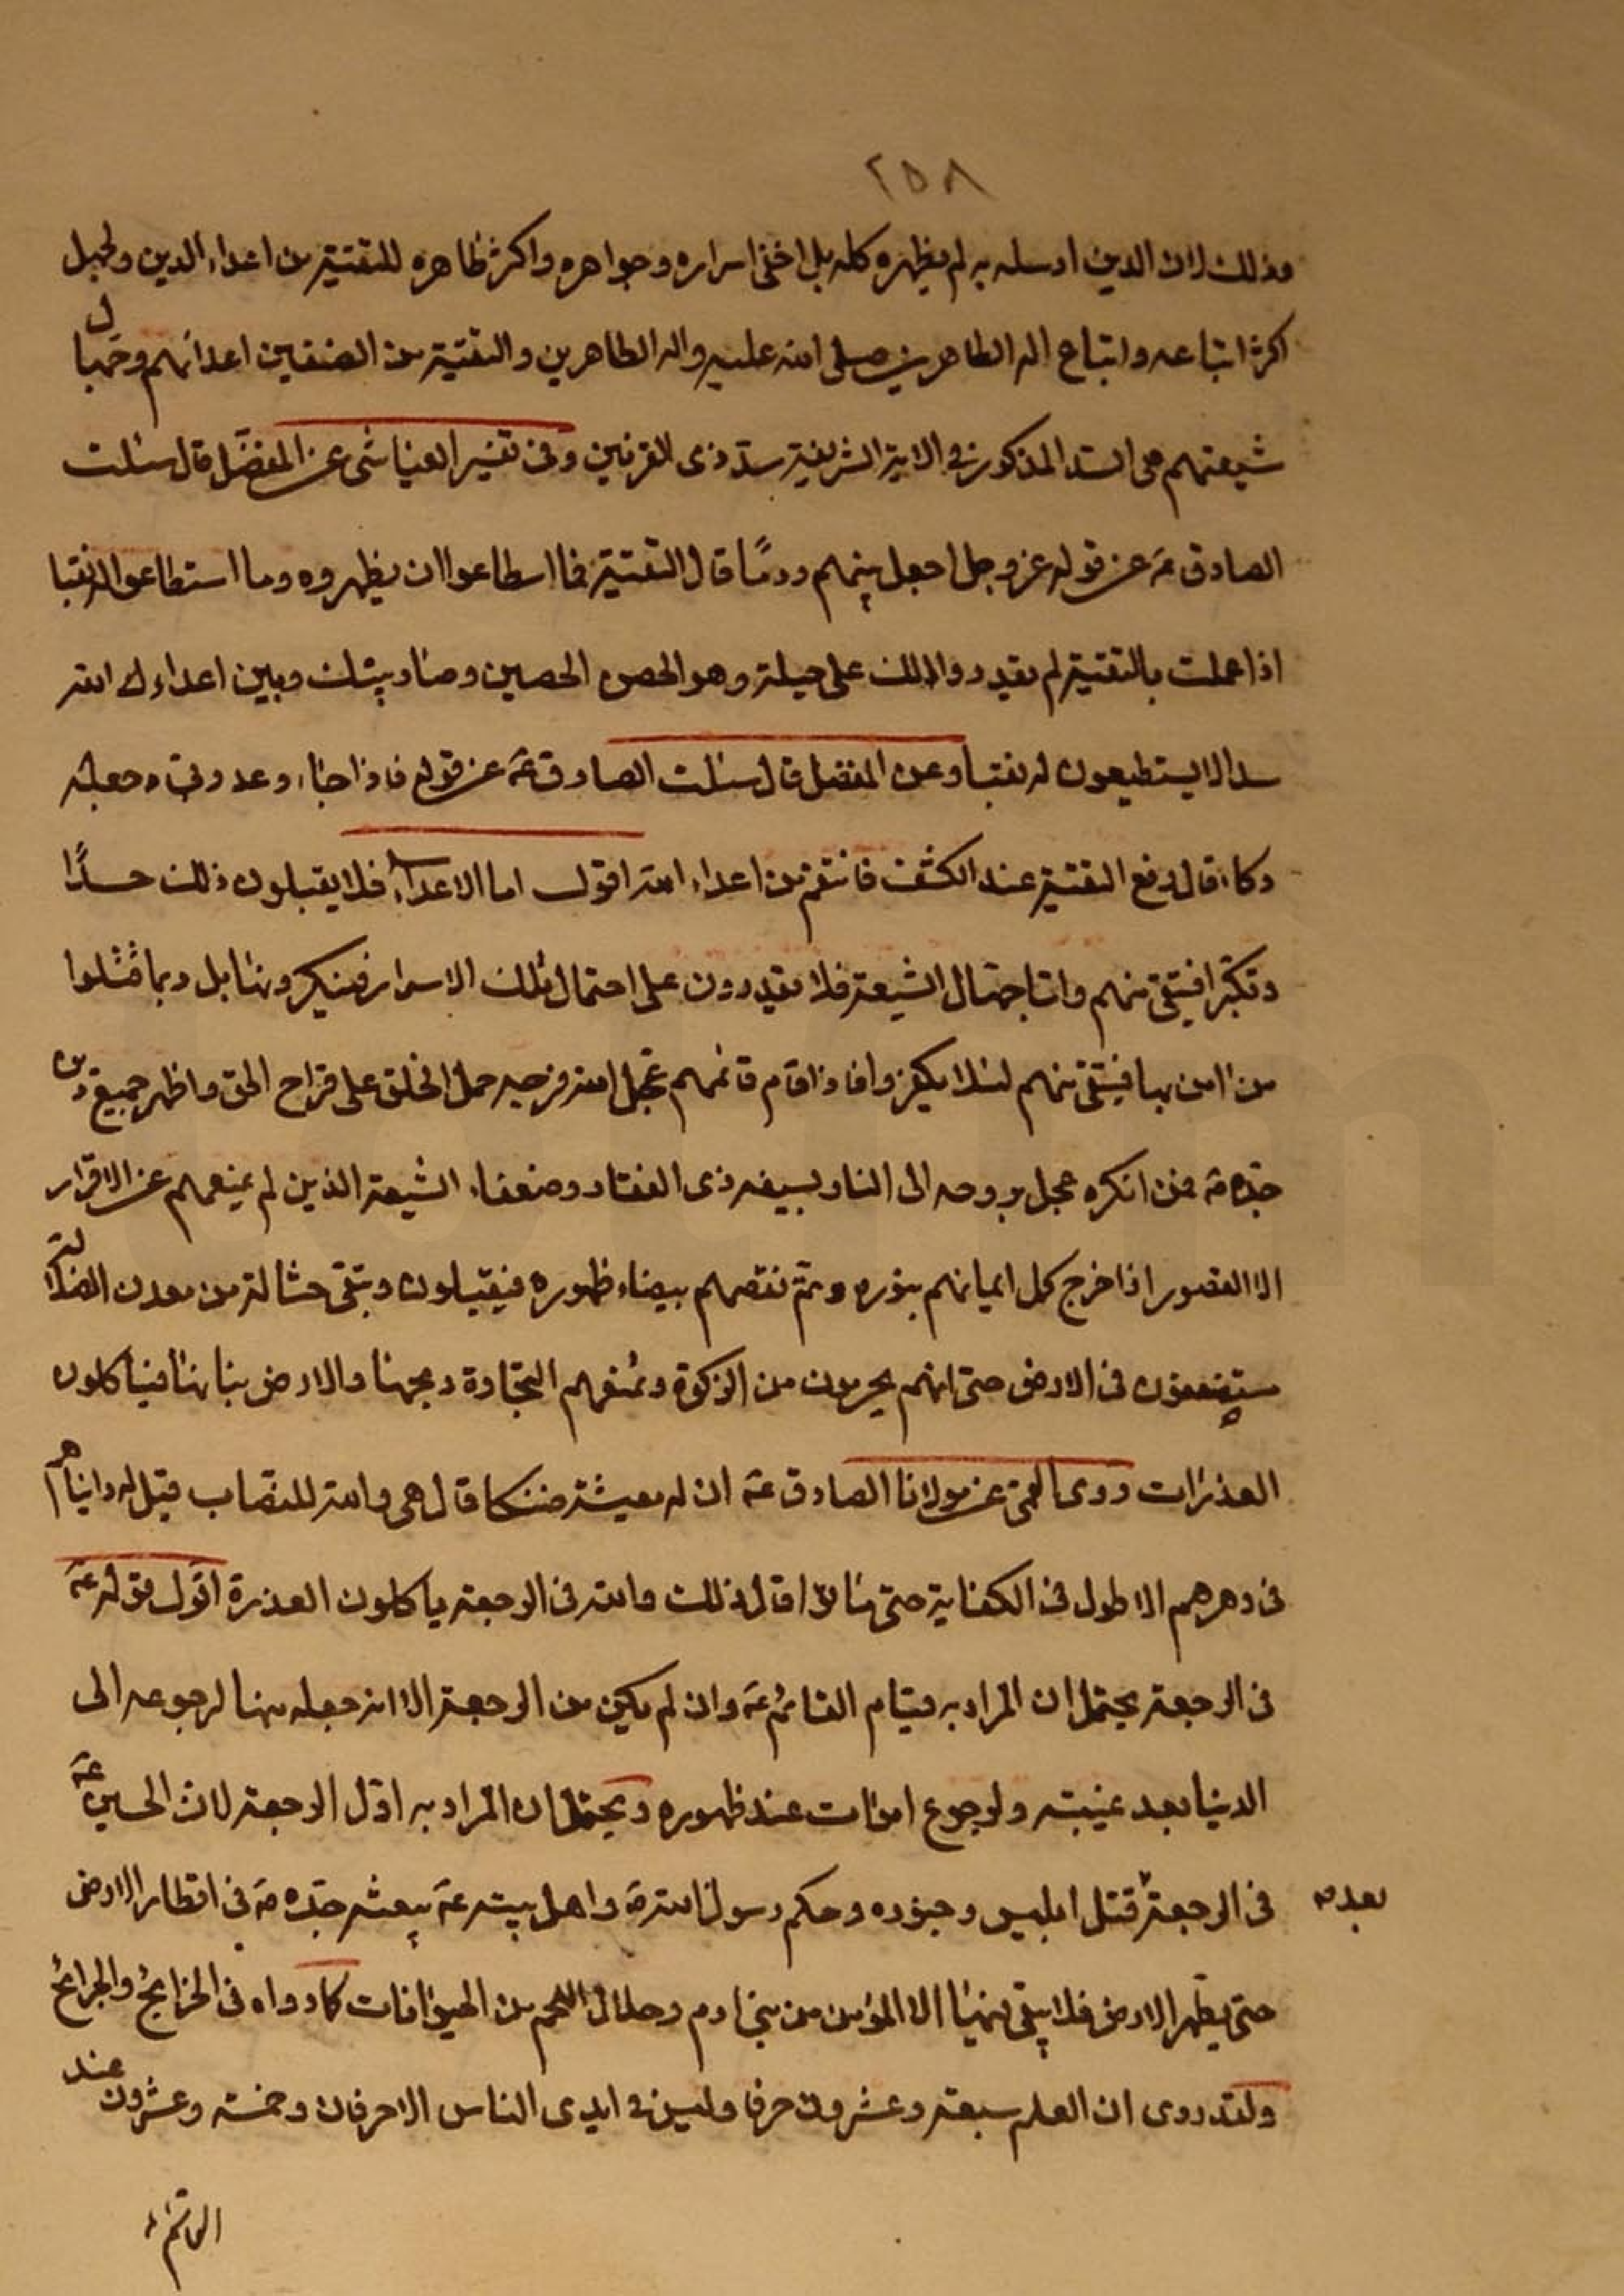 ٢٥٨
وذلك لان الدين ارسله به لم يظهره كله بل اخفى اسراره وجواهره واكثر ظاهره للتقية من اعداء الدين ولجهل
اكثر اتباعه واتباع اله الطاهرين صلى الله عليه واله الطاهرين والتقية من الصنفين اعدائهم وجهال
شيعتهم هى السد المذكور فى الاية الشريفة سد ذى القرنين وفى تفسير العياشى عن المفضل قال سئلت
الصادق ع عن قوله عز وجل اجعل بينهم ردمًا قال التقية فما اسطاعوا ان يظهروه وما استطاعوا له نقبا
اذا عملت بالتقية لم يقدروا لك على حيلة وهو الحصن الحصين وصار بينك وبين اعداء الله
سدا لا يستطيعون له نقبا وعن المفضل قال سئلت الصادق ع عن قوله فاذا جاء وعد ربى جعله
دكاء قال رفع التقية عند الكشف فانتقم من اعداء الله اقول اما الاعداء فلا يقبلون ذلك حسدًا
وتكبرا فيتقى منهم واما جهال الشيعة فلا يقدرون على احتمال تلك الاسرار فينكرونها بل ربما قتلوا
من امن بها فيتقى منهم لئلا يكفروا فاذا قام قائمهم عجل الله فرجه حمل الخلق على قراح الحق واظهر جميع دين
جده ص فمن انكره عجل بروحه الى النار بسيفه ذى الفقار وضعفاء الشيعة الذين لم يمنعهم عن الاقرار
الا القصور اذا خرج كمل ايمانهم بنوره وتمم نقصهم بضياء ظهوره فيقبلون وتبقى حثالة من معدن الضلالة
مستضعفون فى الارض حتى انهم يحرمون من الزكوة وتمنعهم التجارة ربحها والارض نباتها فياكلون
العذرات روى القمى عن مولانا الصادق ع ان له معيشة ضنكا قال هى والله للنصاب قيل له رايناهم
فى دهرهم الاطول فى الكفاية حتى ماتوا قال ذلك والله فى الرجعة ياكلون العذرة اقول قوله ع
فى الرجعة يحتمل ان المراد به قيام القائم ع وان لم يكن من الرجعة الا انه جعله منها لرجوعه الى
الدنيا بعد غيبته ولرجوع اموات عند ظهوره ويحتمل ان المراد به اول الرجعة لان الحسين ع
فى الرجعة بعد قتل ابليس وجنوده وحكم رسول الله ص واهل بيته ع يبعثه جده ص فى اقطار الارض
حتى يطهر الارض فلا يبقى فيها الا المؤمن من بنى ادم وحلال اللحم من الحيوانات كما رواه فى الخرائج والجرائح
ولقد روى ان العلم سبعة وعشرون حرفا وليس فى ايدى الناس الا حرفان وخمسة وعشرون عند
القائم ع